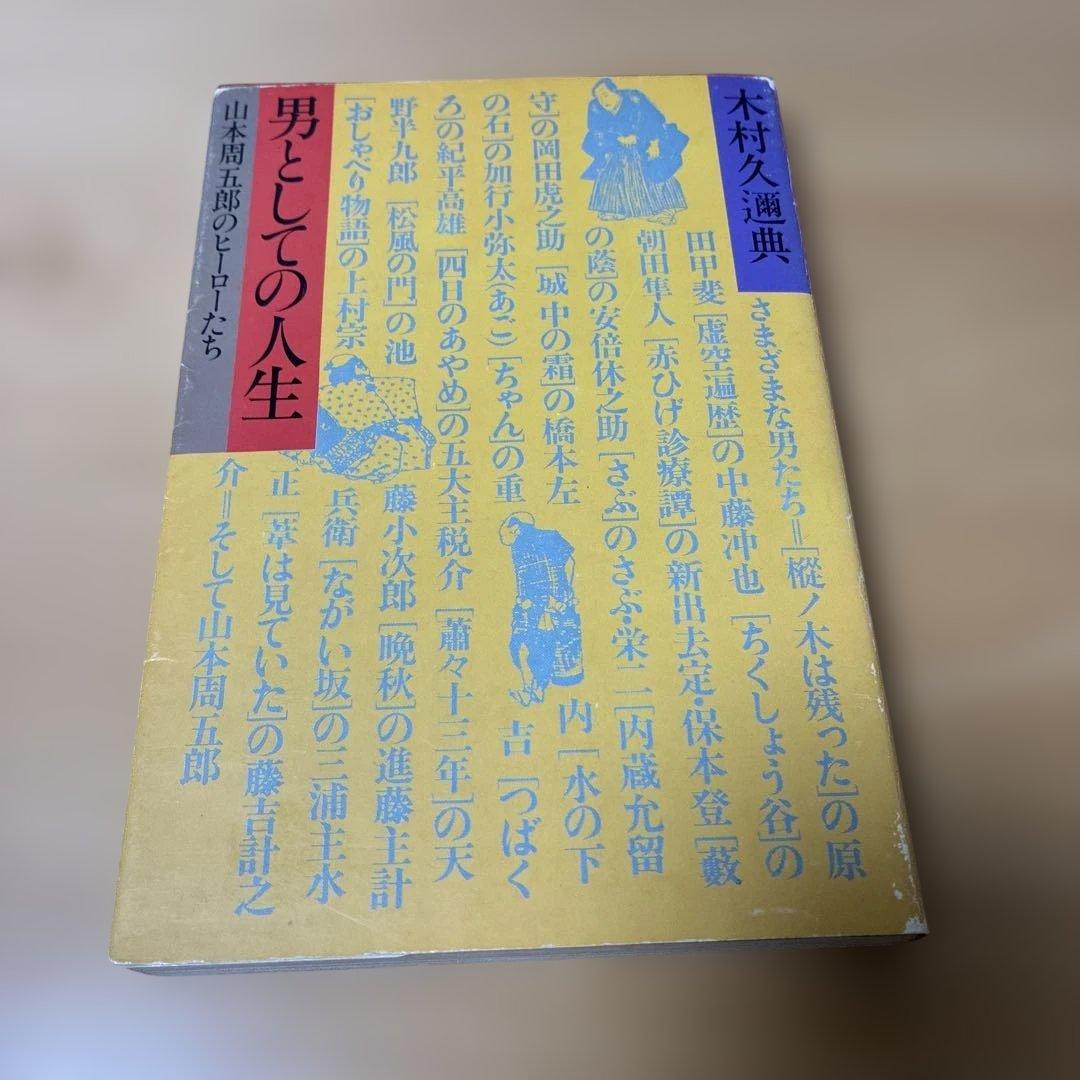 木村久邇典
さまざまな男たち＝[樅ノ木は残った]の原
田甲斐[虚空遍歴]の中藤冲也[ちくしょう谷]の
朝田隼人[赤ひげ診療譚]の新出去定・保本登[藪
の蔭]の安倍休之助[さぶ]のさぶ・栄二[内蔵允留
守]の岡田虎之助[城中の霜]の橋本左内[水の下
の石]の加行小弥太(あご)[ちゃん]の重吉[つばく
ろ]の紀平高雄[四日のあやめ]の五大主税介[蕭々十三年]の天
野半九郎[松風の門]の池藤小次郎[晩秋]の進藤主計
[おしゃべり物語]の上村宗兵衛[ながい坂]の三浦主水
正[葦は見ていた]の藤吉計之
介＝そして山本周五郎
男としての人生
山本周五郎のヒーローたち